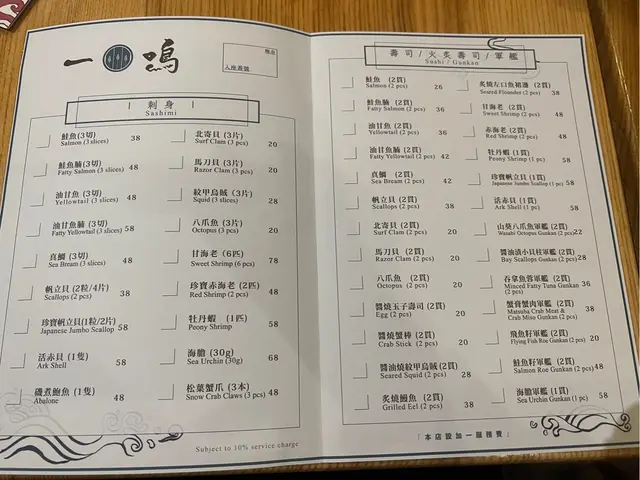 一 鳴
檯號
人座壽號
刺身
Sashimi
鮭魚(3切)
Salmon (3 slices) 38
鮭魚腩 (3切)
Fatty Salmon (3 slices) 48
油甘魚 (3切)
Yellowtail (3 slices) 48
油甘魚腩 (3切)
Fatty Yellowtail (3 slices) 58
真鯛 (3切)
Sea Bream (3 slices) 48
帆立貝 (2粒/4片)
Scallops (2 pcs) 38
珍寶帆立貝(1粒/2片)
Japanese Jumbo Scallop 58
活赤貝 (1隻)
Ark Shell 58
磯煮鮑魚 (1隻)
Abalone 48
北寄貝 (3片)
Surf Clam (3 pcs) 20
馬刀貝 (3片)
Razor Clam (3 pcs) 20
紋甲烏賊 (3片)
Squid (3 slices) 28
八爪魚 (3片)
Octopus (3 pcs) 20
甘海老 (6匹)
Sweet Shrimp (6 pcs) 78
珍寶赤海老 (2匹)
Red Shrimp (2 pcs) 48
牡丹蝦 (1匹)
Peony Shrimp 58
海膽 (30g)
Sea Urchin (30g) 68
松葉蟹爪 (3本)
Snow Crab Claws (3 pcs) 48
Subject to 10% service charge
壽司/火炙壽司/軍艦
Sushi / Gunkan
鮭魚 (2貫)
Salmon (2 pcs) 26
鮭魚腩 (2貫)
Fatty Salmon (2 pcs) 36
油甘魚 (2貫)
Yellowtail (2 pcs) 36
油甘魚腩 (2貫)
Fatty Yellowtail (2 pcs) 42
真鯛 (2貫)
Sea Bream (2 pcs) 42
帆立貝 (2貫)
Scallops (2 pcs) 38
北寄貝 (2貫)
Surf Clam (2 pcs) 20
馬刀貝 (2貫)
Razor Clam (2 pcs) 20
八爪魚 (2貫)
Octopus (2 pcs) 20
醬燒玉子壽司 (2貫)
Egg (2 pcs) 20
醬燒蟹棒 (2貫)
Crab Stick (2 pcs) 20
醬油燒紋甲烏賊(2貫)
Seared Squid (2 pcs) 28
炙燒鰻魚 (2貫)
Grilled Eel (2 pcs) 38
炙燒左口魚裙邊 (2貫)
Seared Flounder (2 pcs) 38
甘海老 (2貫)
Sweet Shrimp (2 pcs) 48
赤海老 (2貫)
Red Shrimp (2 pcs) 48
牡丹蝦 (1貫)
Peony Shrimp (1 pc) 58
珍寶帆立貝 (1貫)
Japanese Jumbo Scallop (1 pc) 58
活赤貝 (1貫)
Ark Shell (1 pc) 58
山葵八爪魚軍艦 (2貫)
Wasabi Octopus Gunkan (2 pcs) 22
醬油漬小貝柱軍艦(2貫)
Bay Scallops Gunkan (2 pcs) 28
吞拿魚蓉軍艦 (2貫)
Minced Fatty Tuna Gunkan 36
(2 pcs)
蟹膏蟹肉軍艦 (2貫)
Matsuba Crab Meat & 38
Crab Miso Gunkan (2 pcs)
飛魚籽軍艦 (2貫)
Flying Fish Roe Gunkan (2 pcs) 20
鮭魚籽軍艦 (2貫)
Salmon Roe Gunkan (2 pcs) 48
海膽軍艦 (1貫)
Sea Urchin Gunkan (1 pc) 58
「本店設加一服務費」